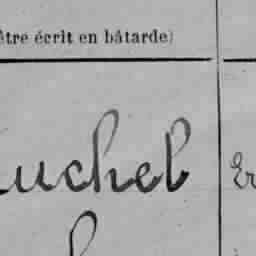 être écrit en bâtarde)
uchel
Er